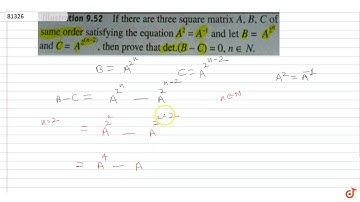 81326
Illustration 9.52 If there are three square matrix A, B, C of
same order satisfying the equation A² = A⁻¹ and let B = A^{2^n}
and C = A^{2^{(n-2)}}, then prove that det.(B – C) = 0, n ∈ N.
B = A^{2^n} C = A^{2^{n-2}} A² = A⁻¹
B - C = A^{2^n} - A^{2^{n-2}} n∈N
n=2 = A^{2^2} - A^{2^{2-2}}
= A⁴ - A